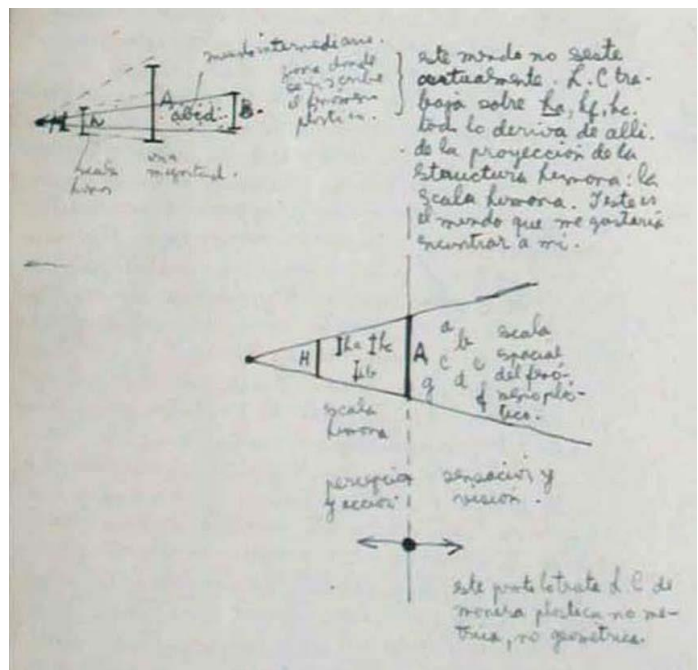 mundo intermediario.
zona donde
se inscribe
el fenómeno
plástico.
este mundo no existe
actualmente. L.C tra-
baja sobre ha, hb, hc.
todo lo deriva de alli.
de la proyección de la
structura humana: la
scala humana. Y este es
el mundo que me gustaría
encontrar a mi.
H h A abcd B
scala
una
magnitud.
H ha hc
hb
A a b c d e f g
escala
espacial
del fenó-
meno plás-
tico.
scala
humana
percepción
y acción
sensación y
visión.
este punto lo trata L C de
manera plástica no mé-
trica, no geométrica.